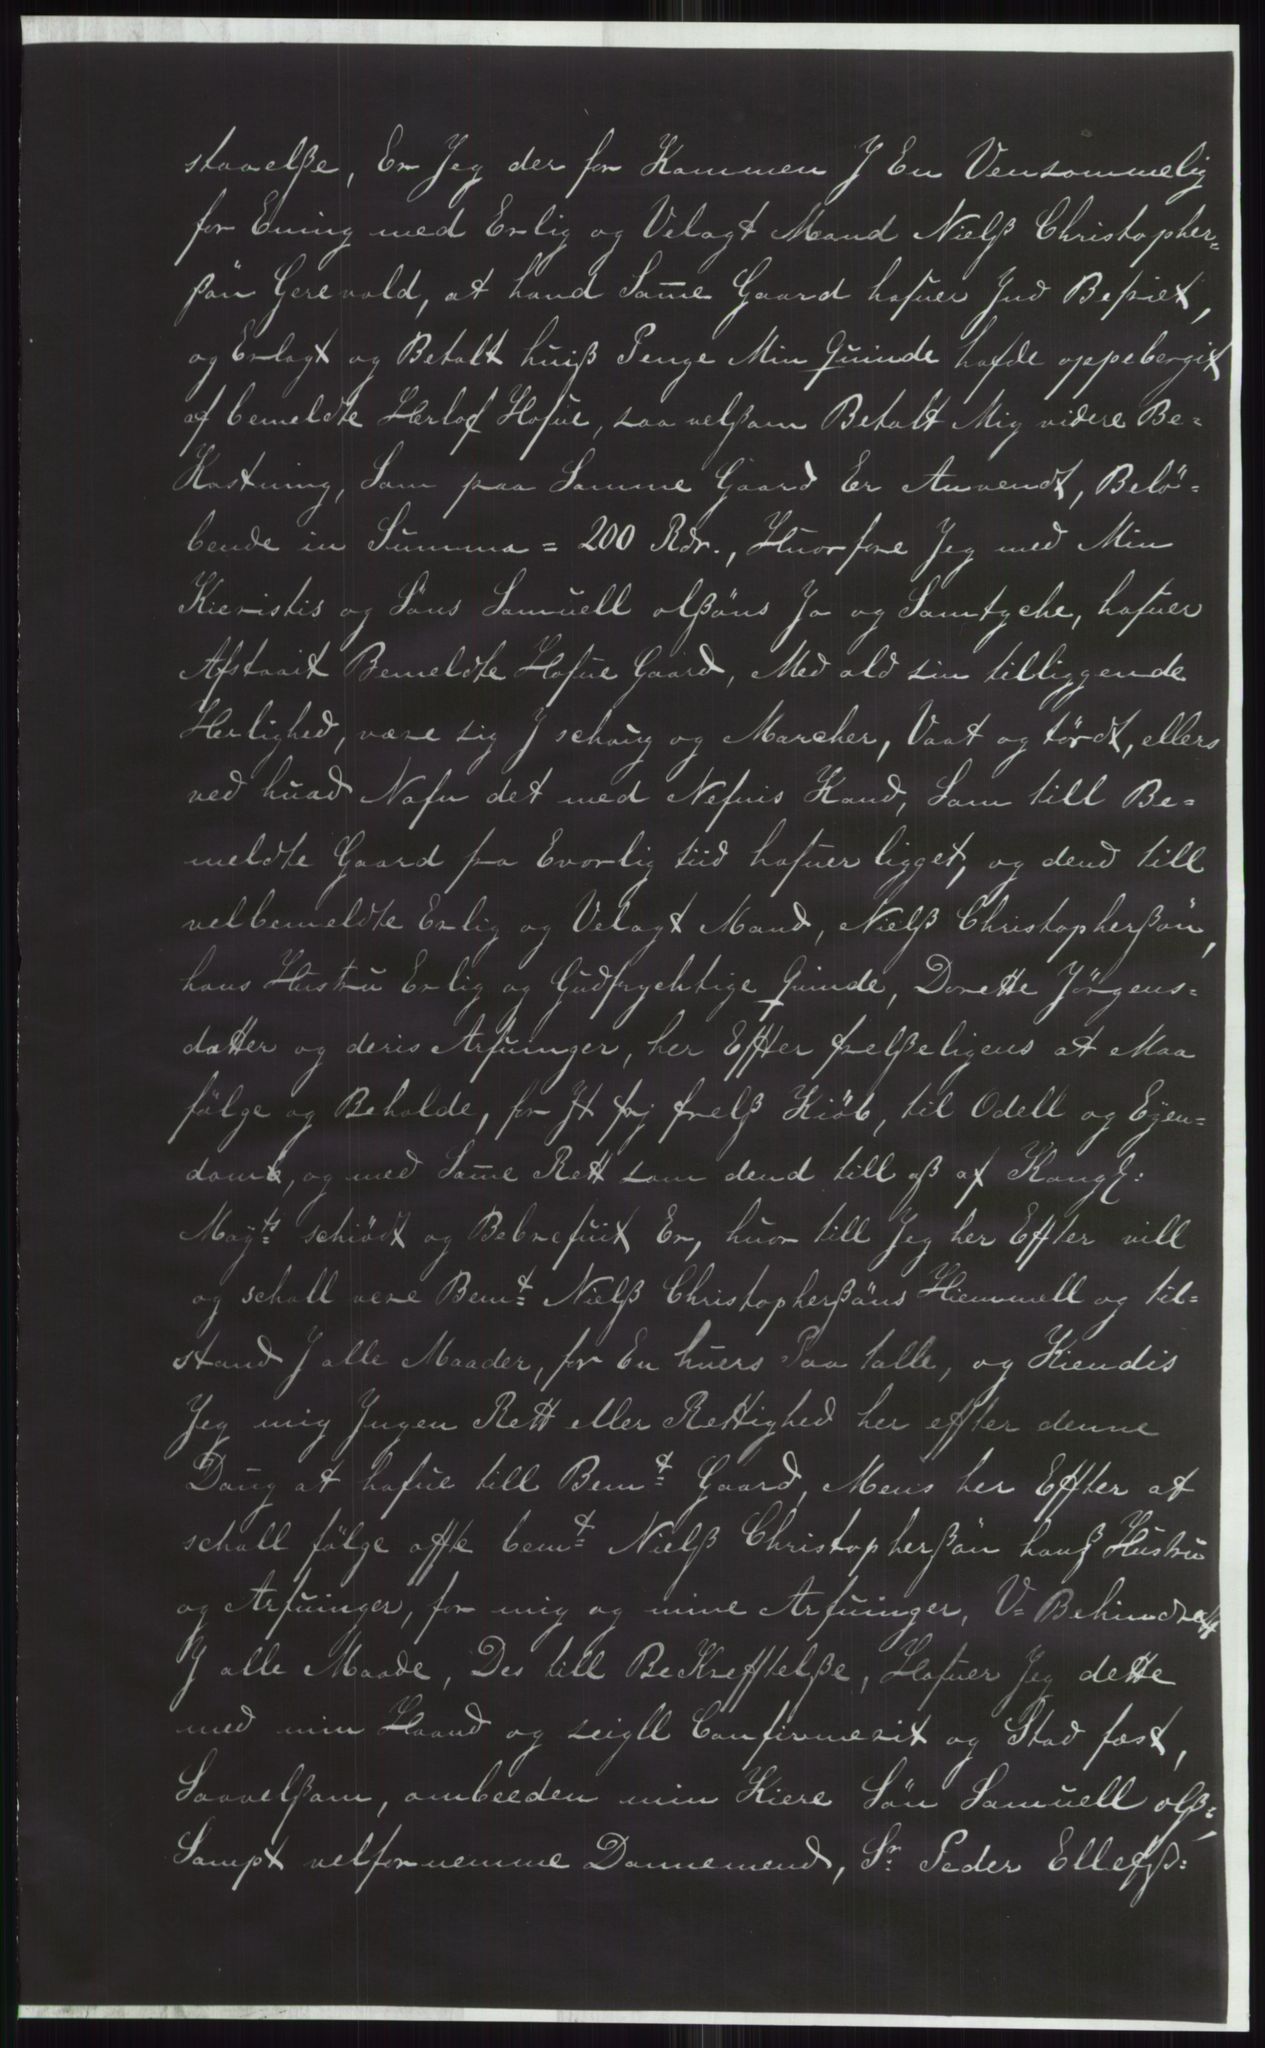 staaelße, Er Jeg der for Kommen J En Vensommelig
for Ening med Erlig og Velagt Mand Nielß Christopher=
ßön Gerevald, at hand Same Gaard hafuer Jnd Befriet,
og Erlagt og Betalt huiß Penge Min Quinde hafde oppebergit
af bemeldte Herlof Hofue, saa velßom Betalt Mig videre Be=
Kostning, Som paa Samme Gaard Er Anvendt, Belö=
bende in Summa = 200 Rdr., Huorfore Jeg med Min
Kieristis og Söns Samuell olßöns Ja og Samtyche, hafuer
Afstaait Bemeldte Hofue Gaard, Med ald sin tilliggende
Herlighed, være sig J schoug og Marcher, Vaat og tördt, ellers
ved huad Nafn det med Nefnis Kand, Som till Be=
meldte Gaard fra Evorlig tiid hafuer ligget, og dend till
velbemeldte Erlig og Velagt Mand, Nielß Christopherßön,
hans Hustru Erlig og Gudfrychtige Quinde, Dorette Jörgens=
datter og deris Arfuinger, her Effter frelßeligens at Maa
fölge og Beholde, for Jt frj frelß Kiöb, til Odell og Eyen=
domb, og med Same Rett som dend till oß af Kongl:
Mayts schiödt og Bebrefuit Er, huor till Jeg her Effter vill
og schall vere Bemt Nielß Christopherßöns Hiemmell og til=
stand J alle Maader, for En huers Paa talle, og Kiendis
Jeg mig Jngen Rett eller Rettighed her efter denne
Daug at hafue till Bemt Gaard, Mens her Effter at
schall fölge offte bemt Nielß Christopherßön hanß Hustru
og Arfuinger, for mig og mine Arfuinger, V= Behindrett
J alle Maade, Des till BeKrefftelße, Hafuer Jeg dette
med min Haand og seigll Confirmerit og Stad fæst,
Saavelßom, ombeeden min Kiere Sön Samuell olß=,
Sampt velfornemme Dannemend, Sr Peder Ellefß: